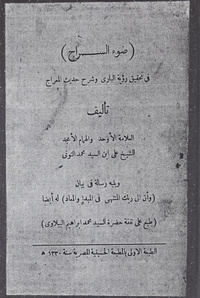 (ضوء السراج)
فى تحقيق رؤية البارى وشرح حديث المعراج
تأليف
العلامة الأوحد والهمام الأمجد
الشيخ على ابن السيد محمد التونى
ويليه رسالة فى بيان
(وأن الى ربك المنتهى فى المبدإ والمعاد) له أيضا
(طبع على نفقة حضرة السيد محمد ابراهيم الببلاوى)
الطبعة الاولى بالمطبعة الحسينية المصرية سنة ١٣٣٠ هـ